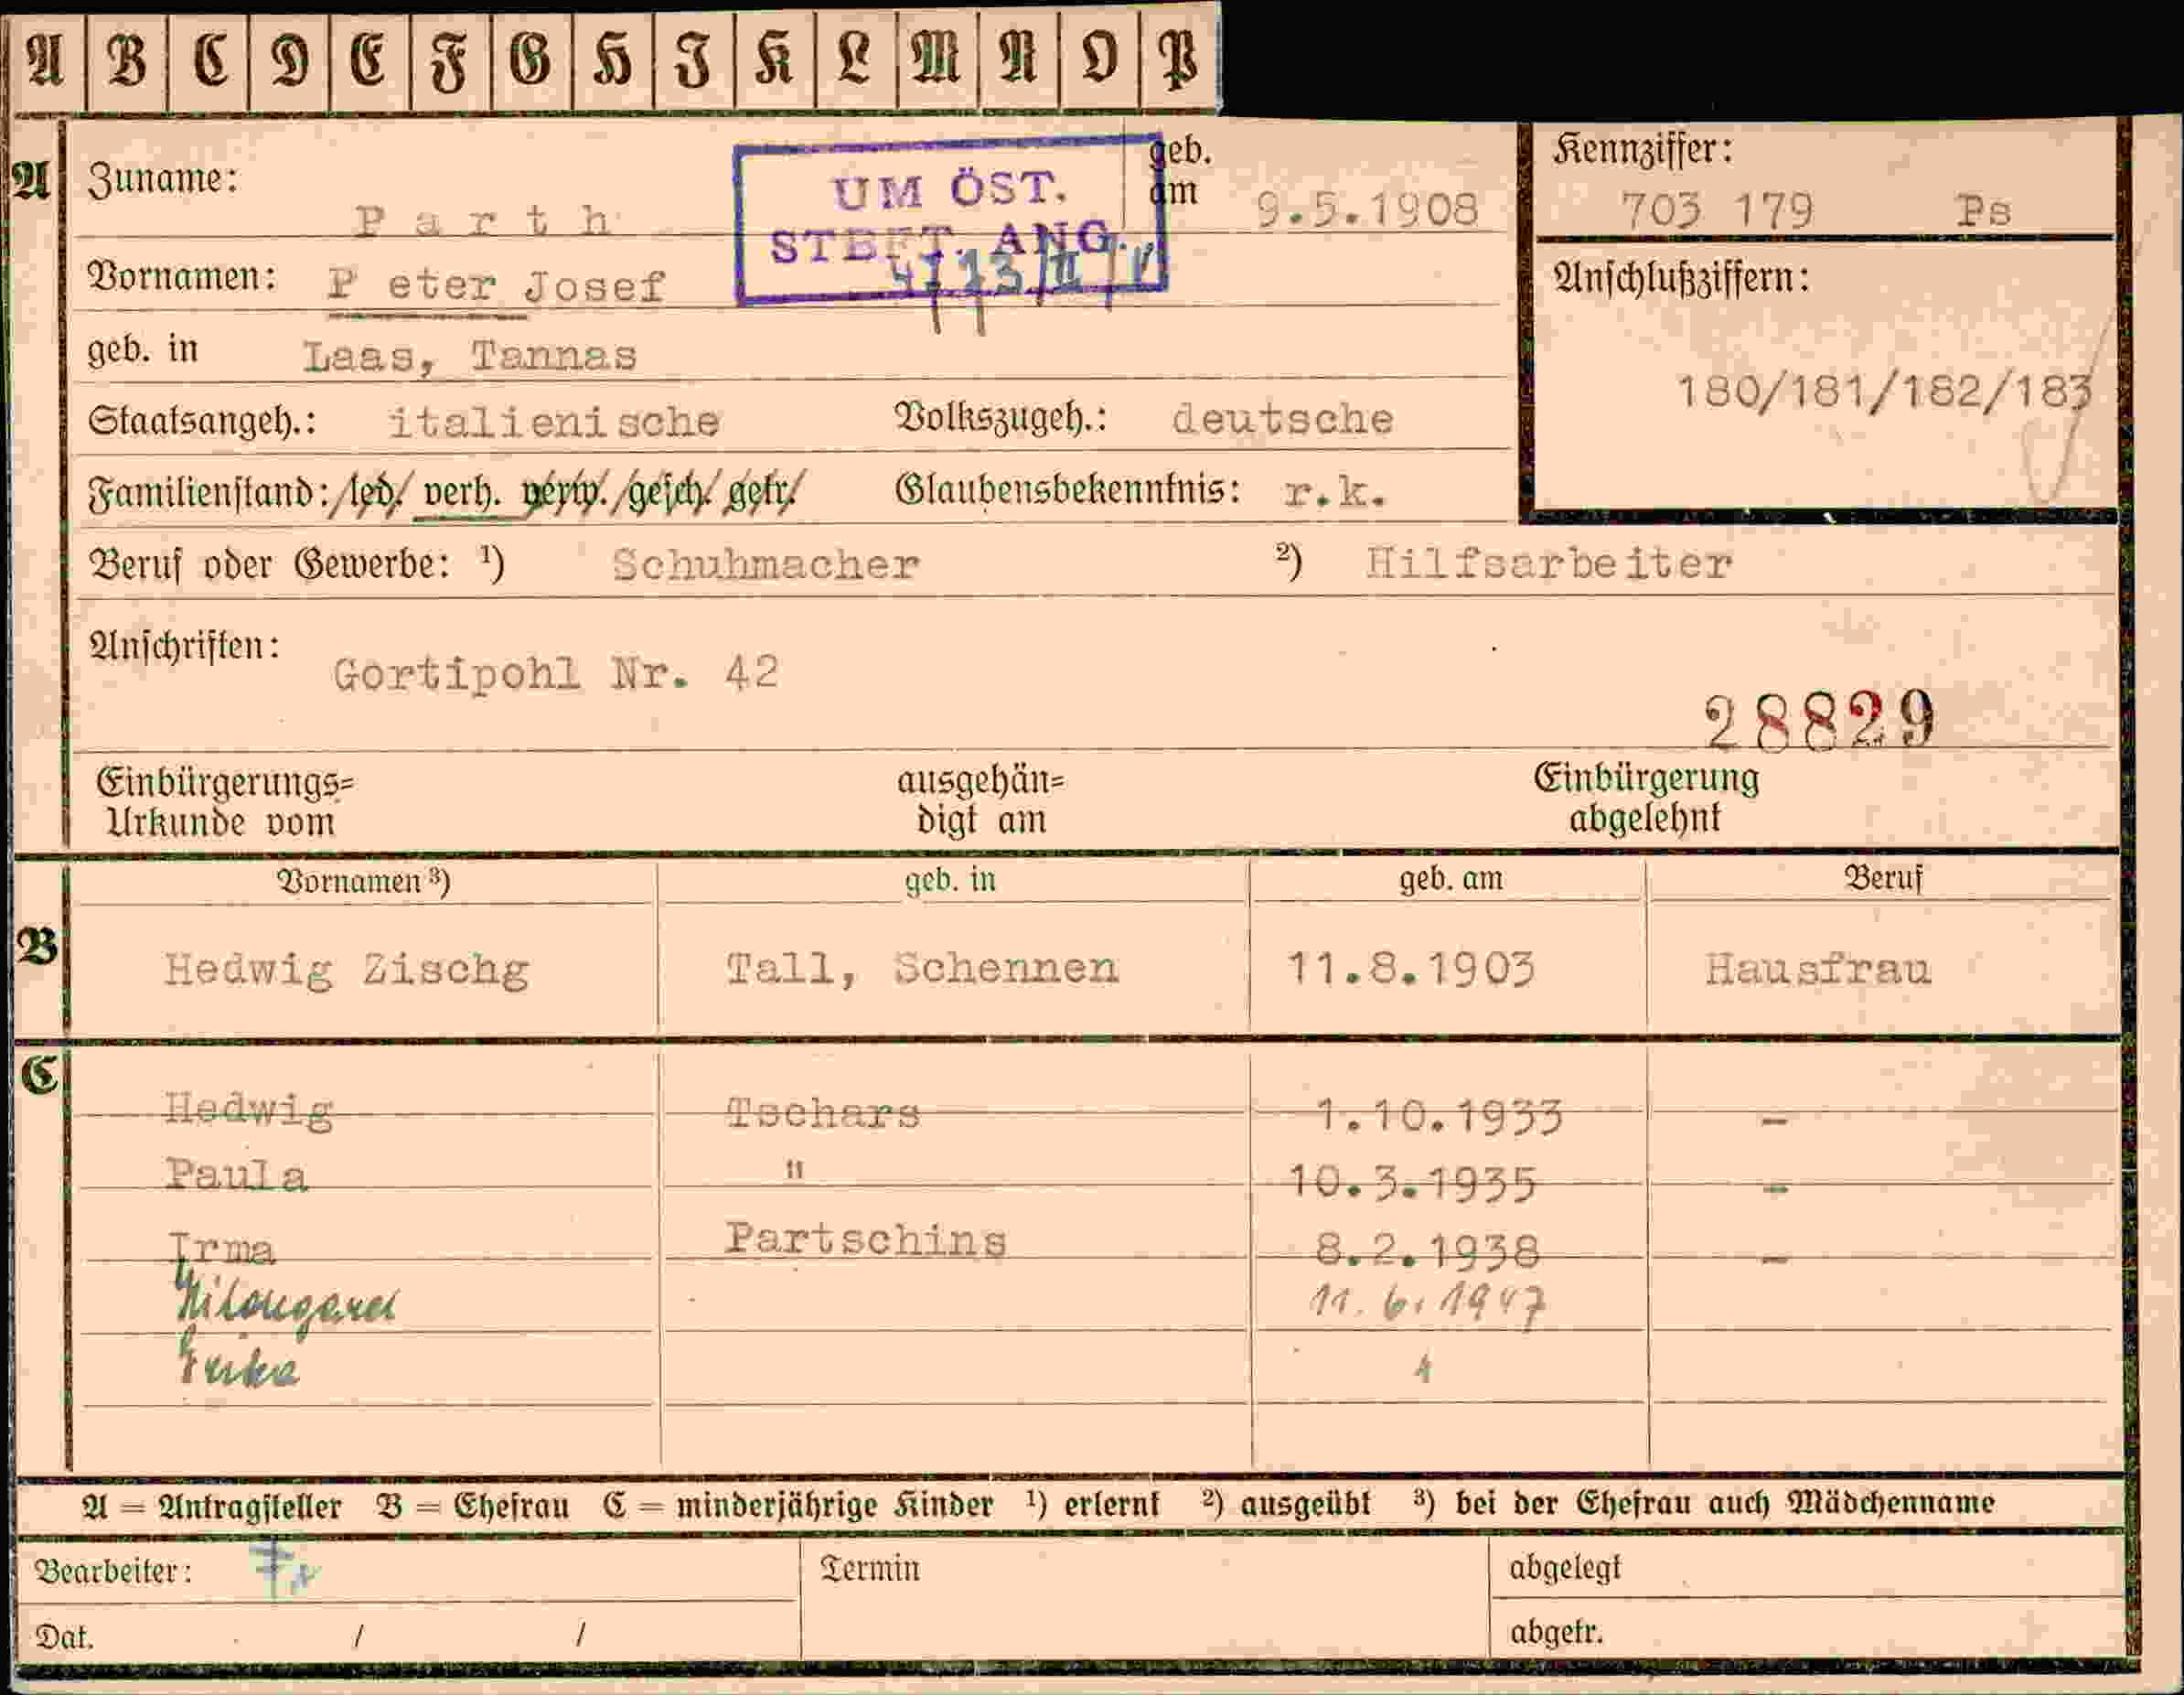 A B C D E F G H I K L M N O P
A Zuname: P a r t h geb. am 9.5.1908
UM ÖST.
STBFT. ANG.
Kennziffer:
703 179 Ps
Vornamen: P eter Josef
Anschlußziffern:
180/181/182/183
geb. in Laas, Tannas
Staatsangeh.: italienische Volkszugeh.: deutsche
Familienstand: led. verh. verw. gesch. getr. Glaubensbekenntnis: r.k.
Beruf oder Gewerbe: ¹) Schuhmacher ²) Hilfsarbeiter
Anschriften: Gortipohl Nr. 42
28829
Einbürgerungs= ausgehän= Einbürgerung
Urkunde vom digt am abgelehnt
Vornamen ³) geb. in geb. am Beruf
B Hedwig Zischg Tall, Schennen 11.8.1903 Hausfrau
C
Hedwig Tschars 1.10.1933 -
Paula " 10.3.1935 -
Irma Partschins 8.2.1938 -
11.6.1947
A = Antragsteller B = Ehefrau C = minderjährige Kinder ¹) erlernt ²) ausgeübt ³) bei der Ehefrau auch Mädchenname
Bearbeiter: Termin abgelegt
Dat. / / abgetr.